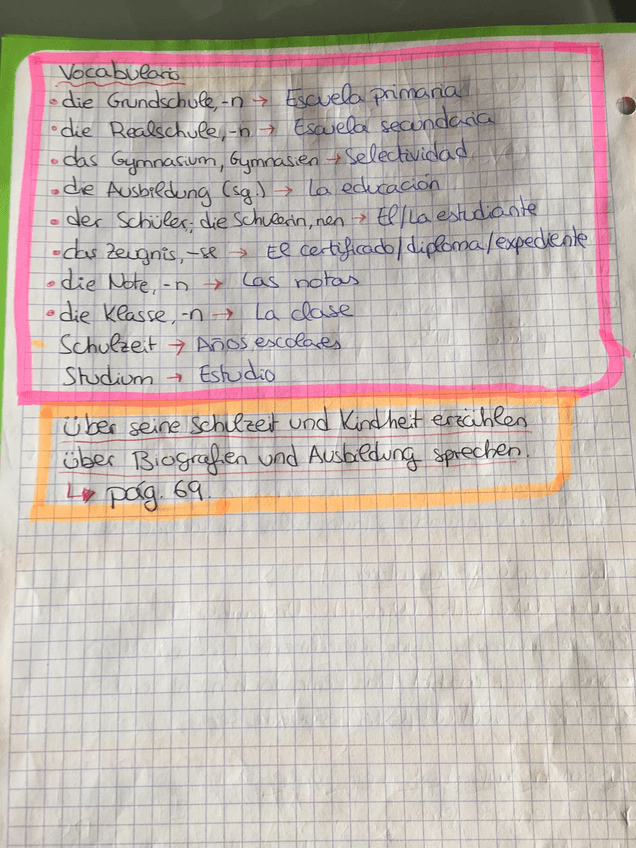 Vocabulario
• die Grundschule, -n → Escuela primaria
• die Realschule, -n → Escuela secundaria
• das Gymnasium, Gymnasien → Selectividad
• die Ausbildung (sg.) → La educación
• der Schüler; die Schülarin, nen → El/La estudiante
• das Zeugnis, -se → El certificado/diploma/expediente
• die Note, -n → Las notas
• die Klasse, -n → La clase
Schulzeit → Años escolares
Studium → Estudio
Über seine Schulzeit und Kindheit erzählen
über Biografien und Ausbildung sprechen.
↳ pág. 69.